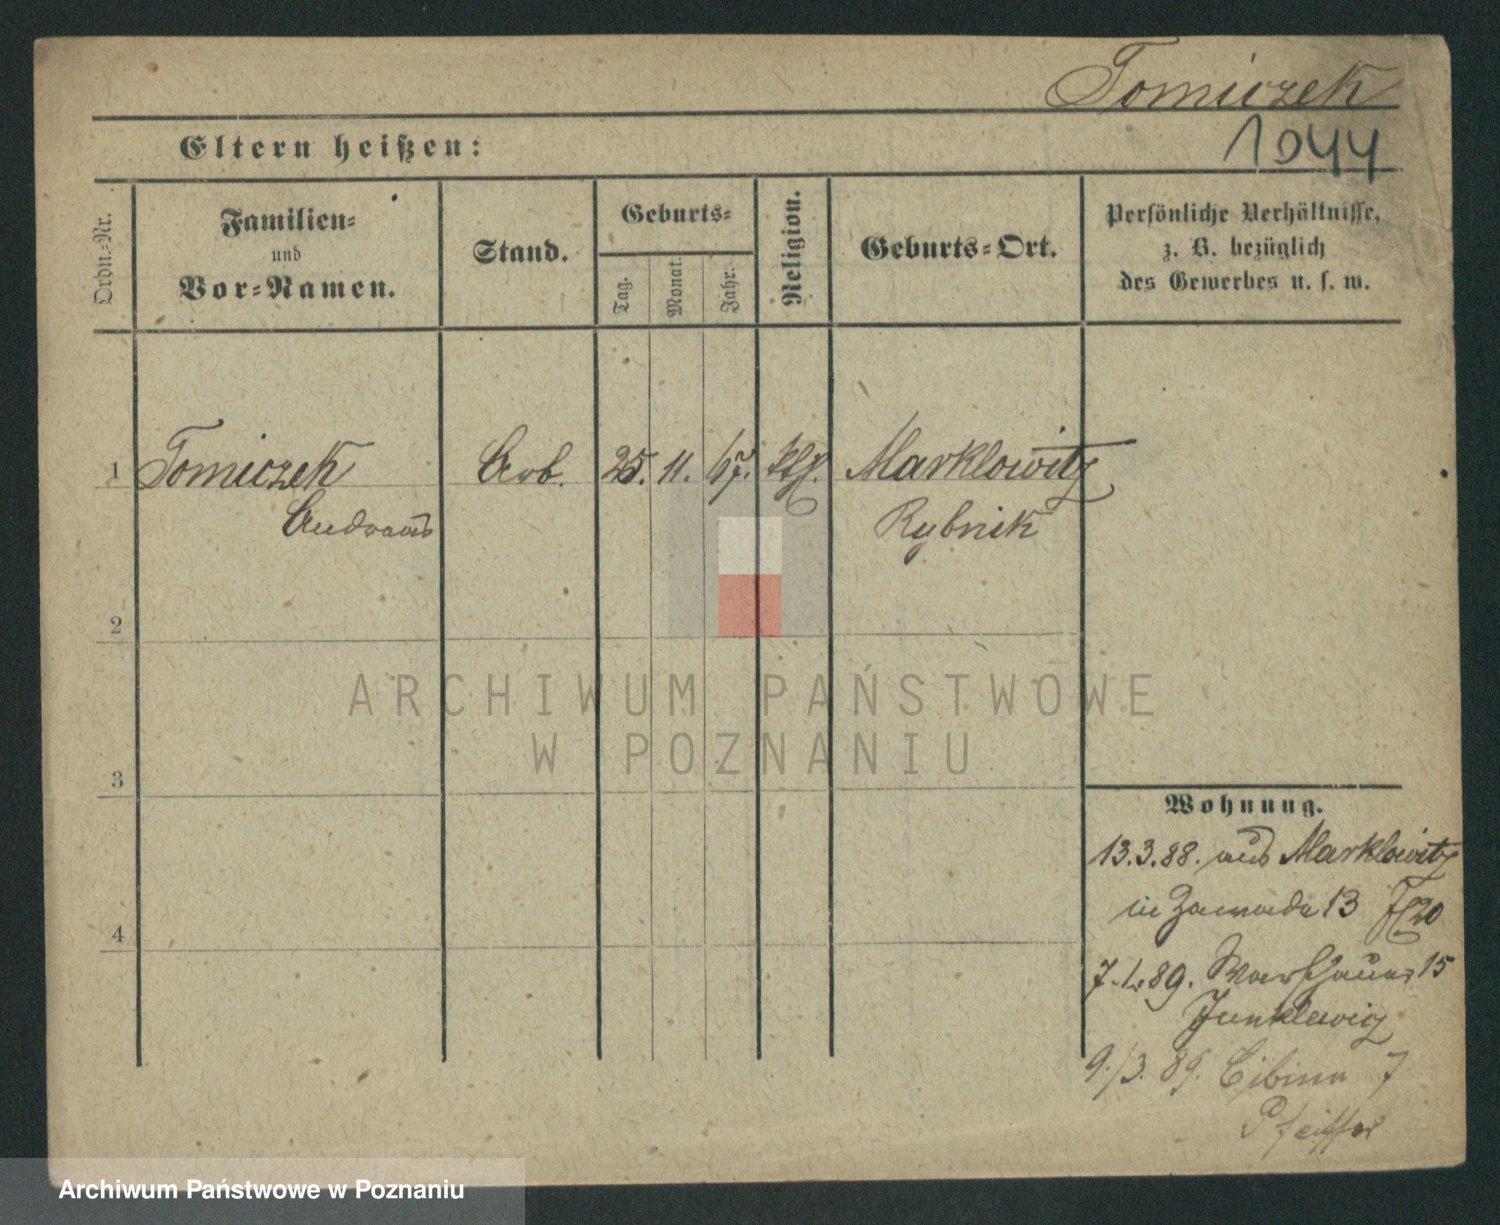 Tomiczek
Eltern heißen:
1044
Ordn.-Nr.
Familien-
und
Vor-Namen.
Stand.
Geburts-
Tag.
Monat.
Jahr.
Religion.
Geburts-Ort.
Persönliche Verhältnisse,
z. B. bezüglich
des Gewerbes u. s. w.
1 Tomiczek Arb. 25. 11. 67. kth. Marklowitz
Andreas Rybnik
2
3
4
ARCHIWUM PAŃSTWOWE
W POZNANIU
Wohnung.
13.3.88. aus Marklowitz
in Zawade 13
7.1.89. Warschauer 15
9./3. 89. Cibina 7
Pfeiffer
Archiwum Państwowe w Poznaniu